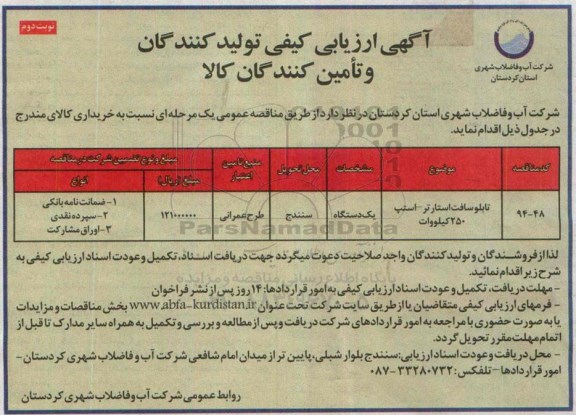 نوبت دوم
شرکت آب و فاضلاب شهری
استان کردستان
آگهی ارزیابی کیفی تولید کنندگان
و تأمین کنندگان کالا
شرکت آب و فاضلاب شهری استان کردستان در نظر دارد از طریق مناقصه عمومی یک مرحله ای نسبت به خریداری کالای مندرج
در جدول ذیل اقدام نماید.
کد مناقصه موضوع مشخصات محل تحویل منبع تامین اعتبار مبلغ و نوع تضمین شرکت در مناقصه
مبلغ (ریال) انواع
۹۴-۴۸ تابلو سافت استارتر-استپ ۲۵۰ کیلو وات یک دستگاه سنندج طرح عمرانی ۱۲۱۰۰۰۰۰۰ ۱- ضمانت نامه بانکی
۲- سپرده نقدی
۳- اوراق مشارکت
لذا از فروشندگان و تولید کنندگان واجد صلاحیت دعوت میگردد جهت دریافت اسناد، تکمیل و عودت اسناد ارزیابی کیفی به
شرح زیر اقدام نمائید.
- مهلت دریافت، تکمیل و عودت اسناد ارزیابی کیفی به امور قراردادها: ۱۴ روز پس از نشر فراخوان
- فرمهای ارزیابی کیفی متقاضیان یا از طریق سایت شرکت تحت عنوان www.abfa-kurdistan.ir بخش مناقصات و مزایدات
یا به صورت حضوری با مراجعه به امور قراردادهای شرکت دریافت و پس از مطالعه و بررسی و تکمیل به همراه سایر مدارک تا قبل از
اتمام مهلت مقرر تحویل گردد.
- محل دریافت و عودت اسناد ارزیابی: سنندج بلوار شبلی، پایین تر از میدان امام شافعی شرکت آب و فاضلاب شهری کردستان -
امور قراردادها - تلفکس: ۳۳۲۸۰۷۳۲-۰۸۷
روابط عمومی شرکت آب و فاضلاب شهری کردستان
ParsNamadData
پایگاه اطلاع رسانی مناقصه و مزایده